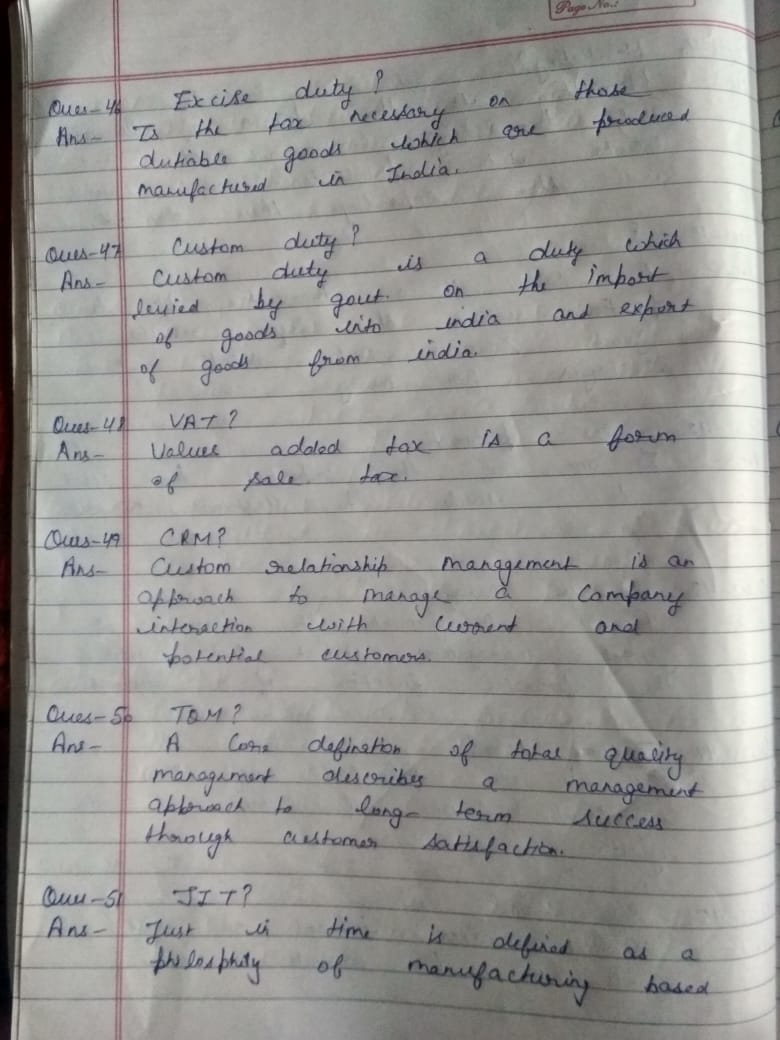 Page No.:
Ques-46 Excise duty?
Ans- Is the tax necessary on those
dutiable goods which are produced
manufactured in India.
Ques-47 Custom duty?
Ans- Custom duty is a duty which
levied by govt. on the import
of goods into india and export
of goods from india.
Ques-48 VAT?
Ans- Values added tax is a form
of sale tax.
Ques-49 CRM?
Ans- Custom relationship management is an
approach to manage a Company
interaction with current and
potential customers.
Ques-50 TQM?
Ans- A Core defination of total quality
management describes a management
approach to long-term success
through customer satisfaction.
Ques-51 JIT?
Ans- Just in time is defined as a
philosphity of manufacturing based